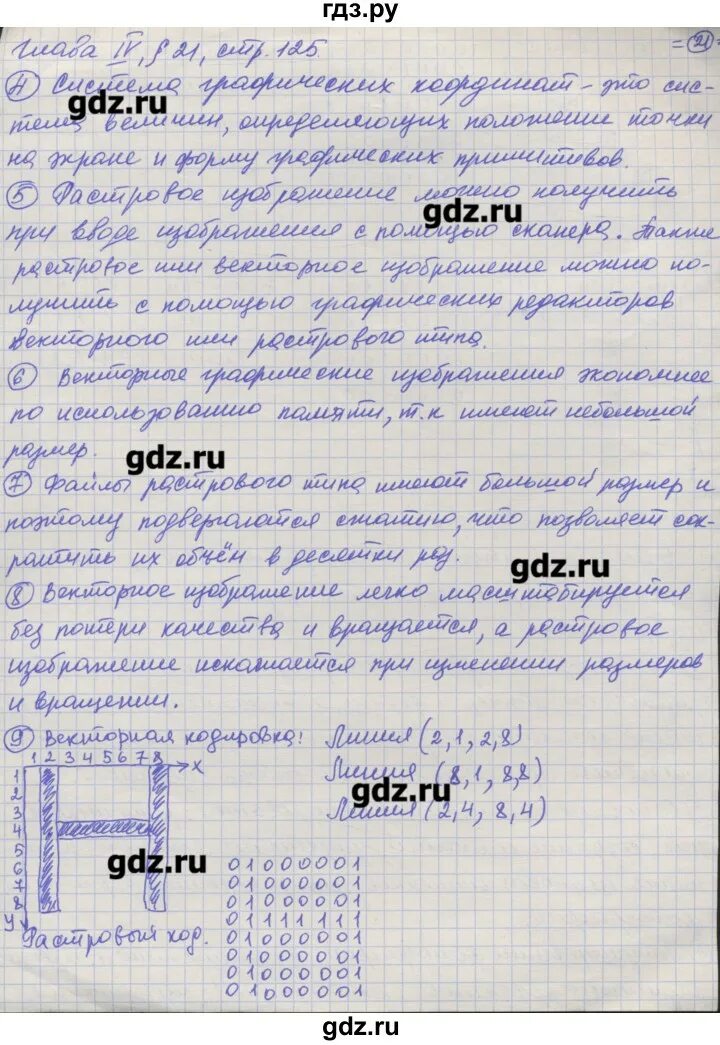 гдз.ру
Глава IV, § 21, стр. 125
= 21
4 Система графических координат - это сис-
gdz.ru
тема величин, определяющих положение точки
на экране и форму графических примитивов.
5 Растровое изображение можно получить
gdz.ru
при вводе изображения с помощью сканера. Также
растровое или векторное изображение можно по-
лучить с помощью графических редакторов
векторного или растрового типа.
6 Векторные графические изображения экономнее
по использованию памяти, т.к имеют небольшой
размер.
gdz.ru
7 Файлы растрового типа имеют большой размер и
поэтому подвергаются сжатию, что позволяет сок-
ратить их объём в десятки раз.
gdz.ru
8 Векторное изображение легко масштабируется
без потери качества и вращается, а растровое
изображение искажается при изменении размеров
и вращении.
9 Векторная кодировка: Линия (2,1,2,8)
1 2 3 4 5 6 7 8 X
Линия (8,1, 8,8)
gdz.ru
Линия (2,4, 8,4)
1
2
3
4
5
6
7
8
У
gdz.ru
Растровый код.
01000001
01000001
01000001
01111111
01000001
01000001
01000001
01000001
gdz.ru